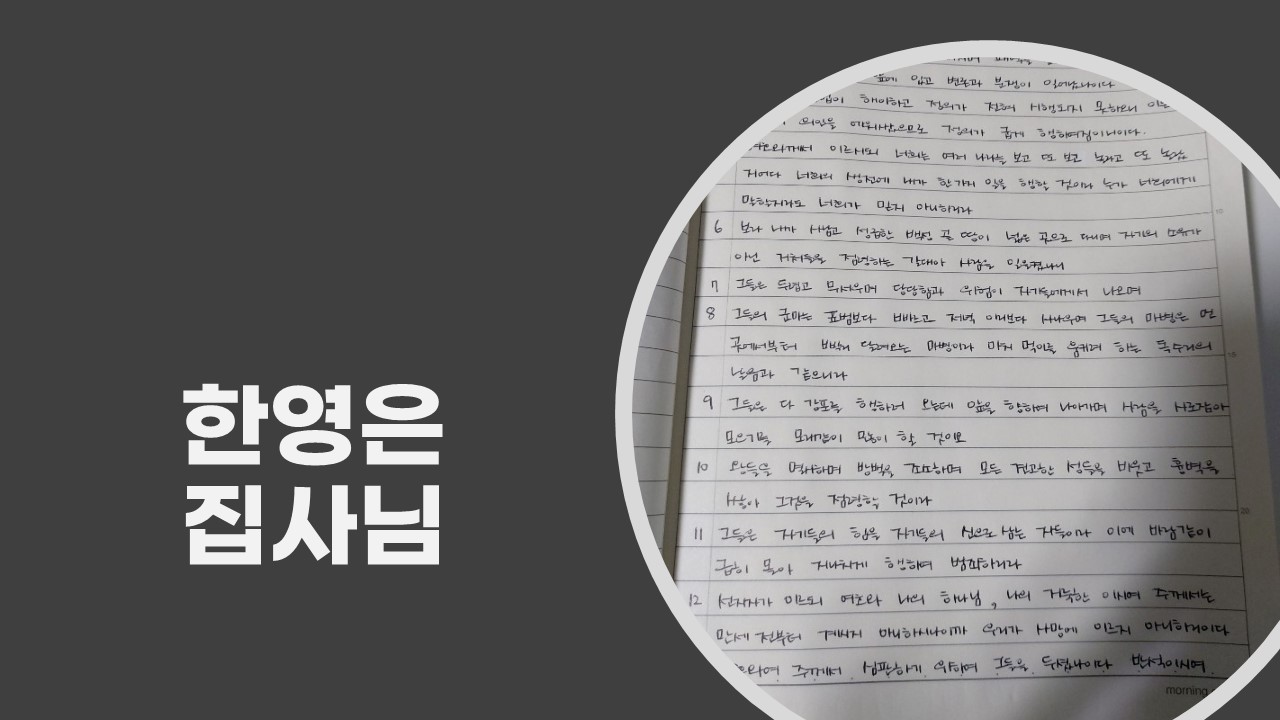 한영은
집사님
앞에 있고 변론과 분쟁이 일어났나이다
해이하고 정의가 전혀 시행되지 못하오니 이는
의인을 에워쌌으므로 정의가 굽게 행하여짐이니이다.
여호와께서 이르시되 너희는 여러 나라를 보고 또 보고 놀라고 또 놀랄
지어다 너희의 생전에 내가 한 가지 일을 행할 것이라 누가 너희에게
말할지라도 너희가 믿지 아니하리라
6 보라 내가 사납고 성급한 백성 곧 땅이 넓은 곳으로 다니며 자기의 소유가
아닌 거처들을 점령하는 갈대아 사람을 일으켰나니
7 그들은 두렵고 무서우며 당당함과 위엄이 자기들에게서 나오며
8 그들의 군마는 표범보다 빠르고 저녁 이리보다 사나우며 그들의 마병은 먼
곳에서부터 빨리 달려오는 마병이라 마치 먹이를 움키려 하는 독수리의
날음과 같으니라
9 그들은 다 강포를 행하러 오는데 앞을 향하여 나아가며 사람을 사로잡아
모으기를 모래같이 많이 할 것이요
10 왕들을 멸시하며 방백을 조소하며 모든 견고한 성들을 비웃고 흉벽을
쌓아 그것을 점령할 것이라
11 그들은 자기들의 힘을 자기들의 신으로 삼는 자들이라 이에 바람같이
급히 몰아 지나치게 행하여 범죄하리라
12 선지자가 이르되 여호와 나의 하나님, 나의 거룩한 이시여 주께서는
만세 전부터 계시지 아니하시니이까 우리가 사망에 이르지 아니하리이다
주께서 심판하기 위하여 그들을 두셨나이다 반석이시여
morning